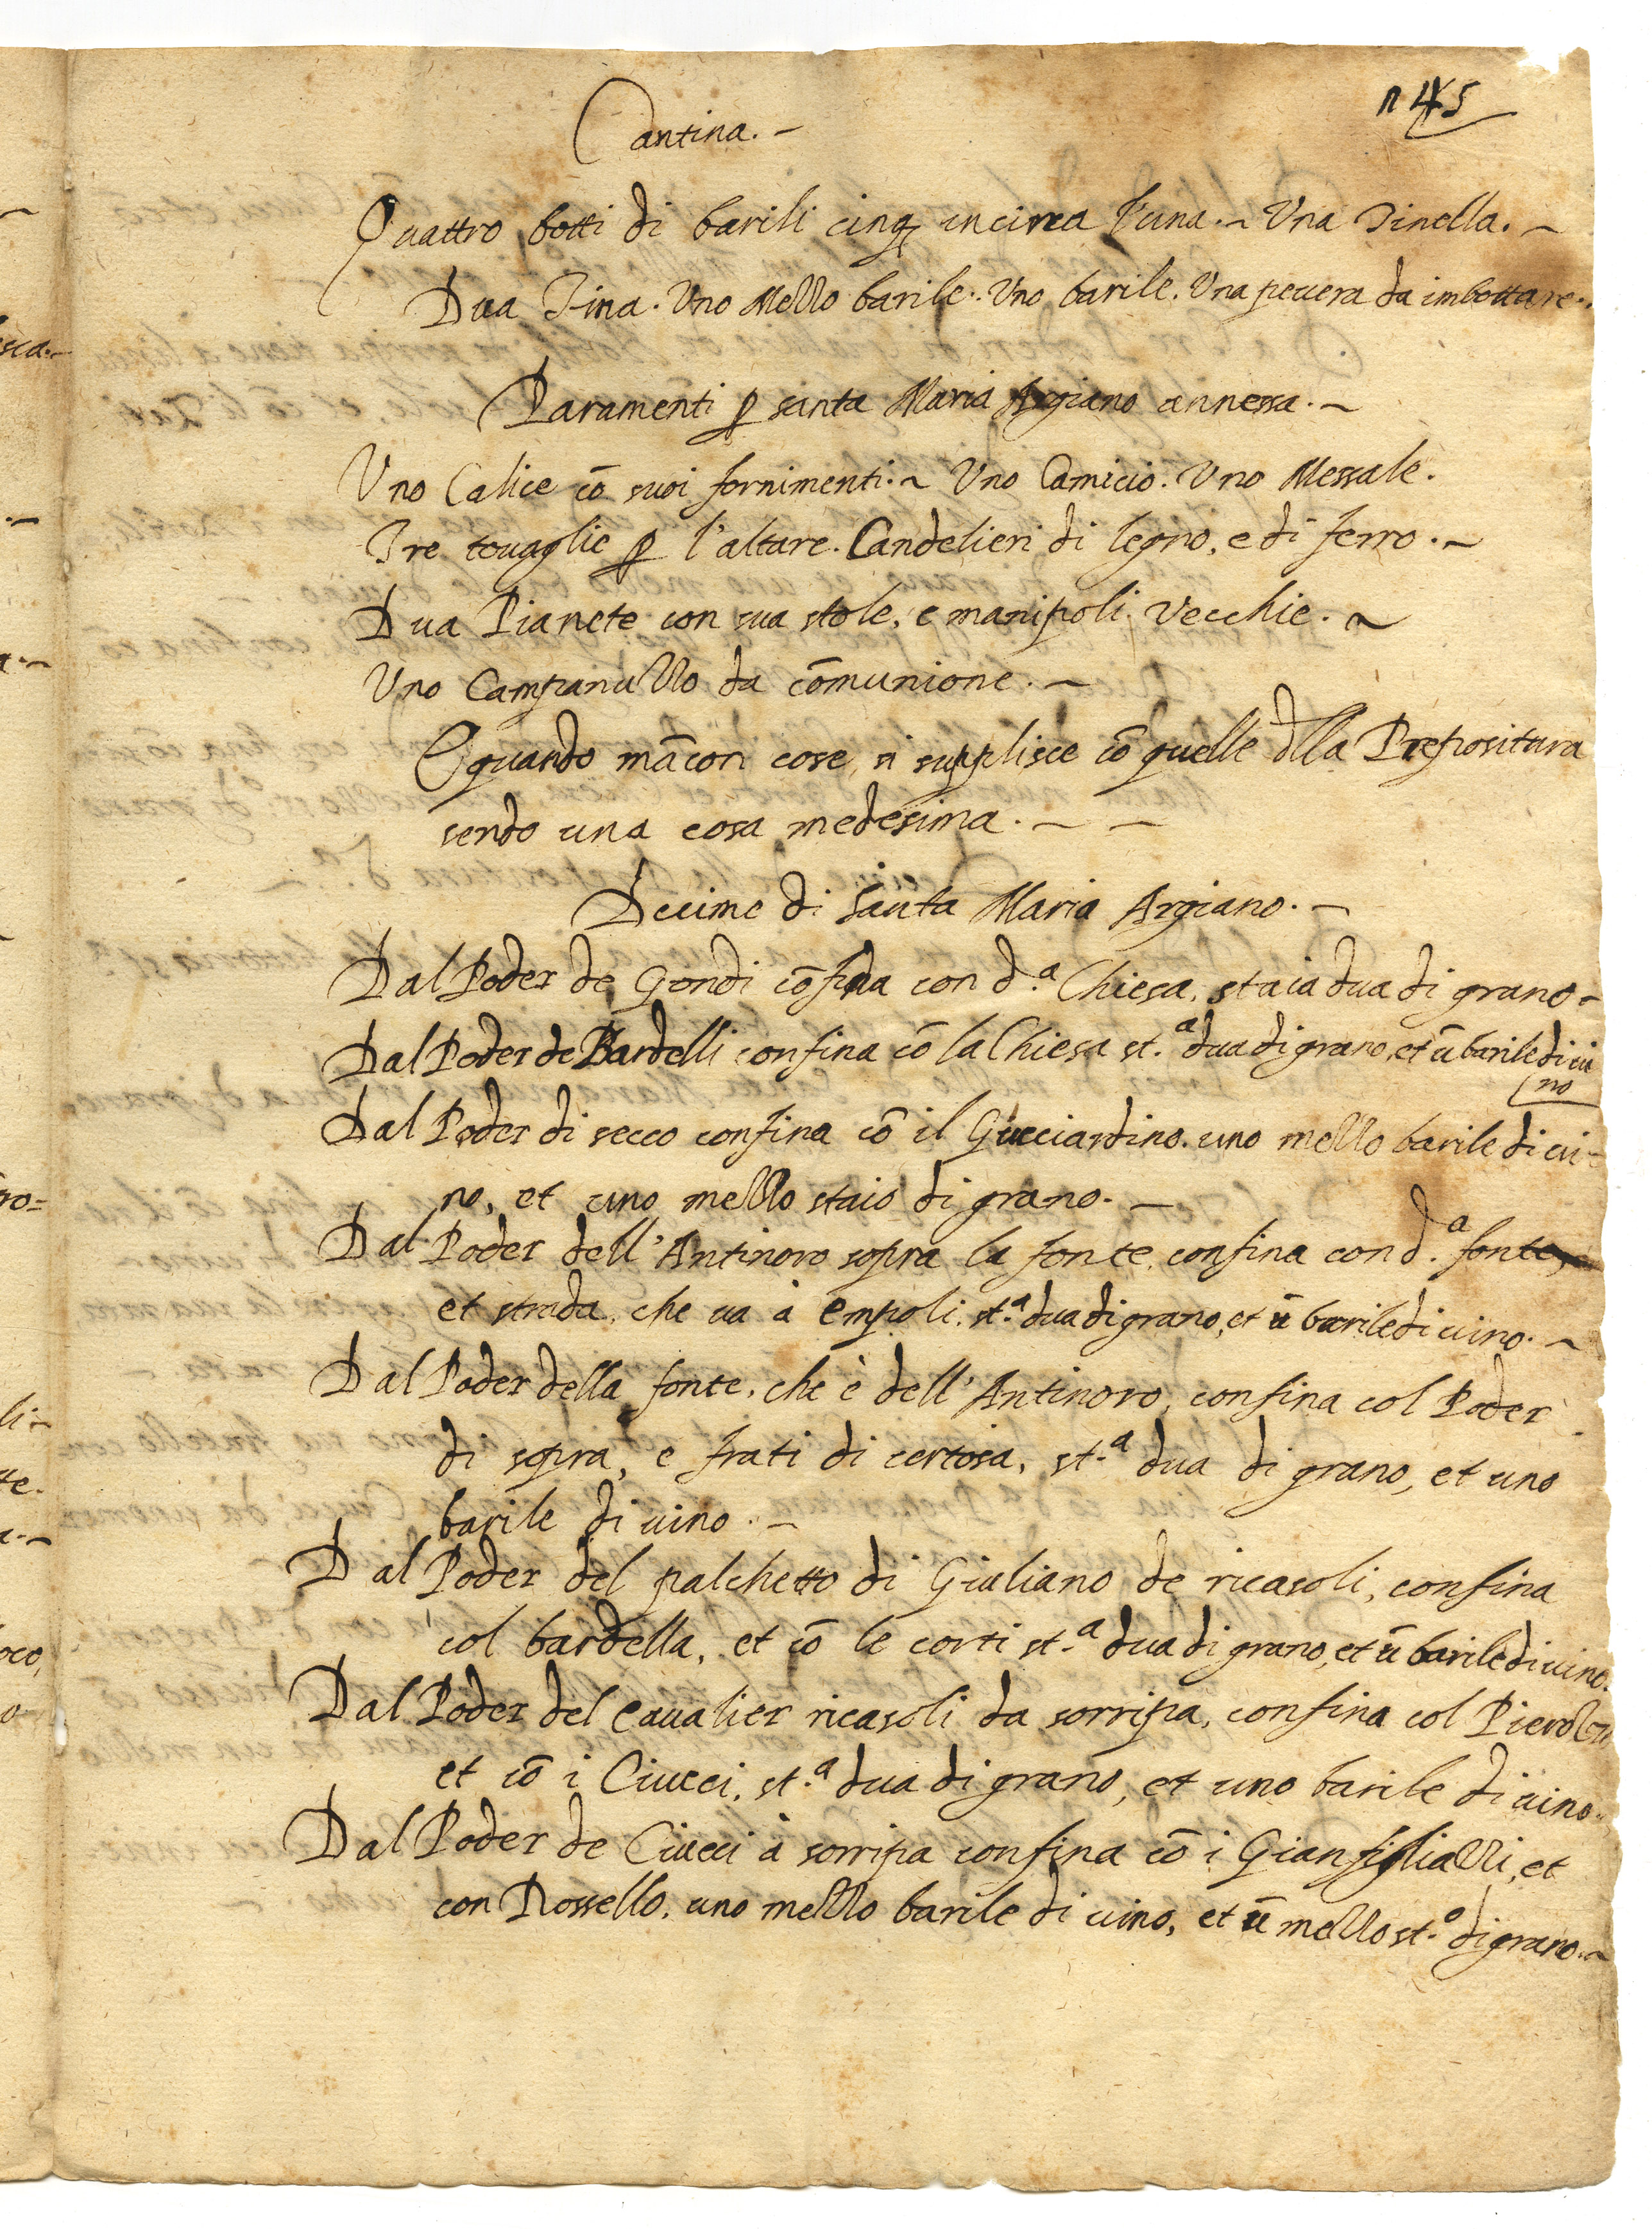 n 45
Cantina. ~
Quattro botti di barili cinq incirca l'una. ~ Una Tinella. ~
Dua Tina. Uno Mezzo barile. Uno barile. Una pevera da imbottare.
Paramenti p santa Maria Argiano annessa. ~
Uno Calice cō suoi fornimenti. ~ Uno Camicio. Uno Messale.
Tre tovaglie p l'altare. Candelieri di legno, e di ferro. ~
Dua Pianete con sua stole, e manipoli. vecchie. ~
Uno Campanuzzo da cōmunione. ~
E quando mācon cose, si supplisce cō quelle dlla Prepositura
sendo una cosa medesima. ~ ~
Decime di Santa Maria Argiano. ~
Dal Poder de Gondi cōfina con d.ª Chiesa, staia dua di grano ~
Dal Poder de Bardelli confina cō la Chiesa st.ª dua di grano, et ū barile di vi
no
Dal Poder di secco confina cō il Guicciardino. uno mezzo barile di vi-
no, et uno mezzo staio di grano. ~
Dal Poder dell'Antinoro sopra la fonte, confina con d.ª fonte,
et strada, che va à Empoli, st.ª dua di grano, et ū barile di vino. ~
Dal Poder della fonte, che è dell'Antinoro, confina col Poder
di sopra, e frati di certosa, st.ª dua di grano, et uno
barile di vino. ~
Dal Poder del palchetto di Giuliano de ricasoli, confina
col bardella, et cō le corti st.ª dua di grano, et ū barile di vino.
Dal Poder del Cavalier ricasoli da sorripa, confina col
et cō i Ciucci, st.ª dua di grano, et uno barile di vino.
Dal Poder de Ciucci à sorripa confina cō i Gianfigliazzi, et
con Rossello, uno mezzo barile di vino, et ū mezzo st.º di grano. ~